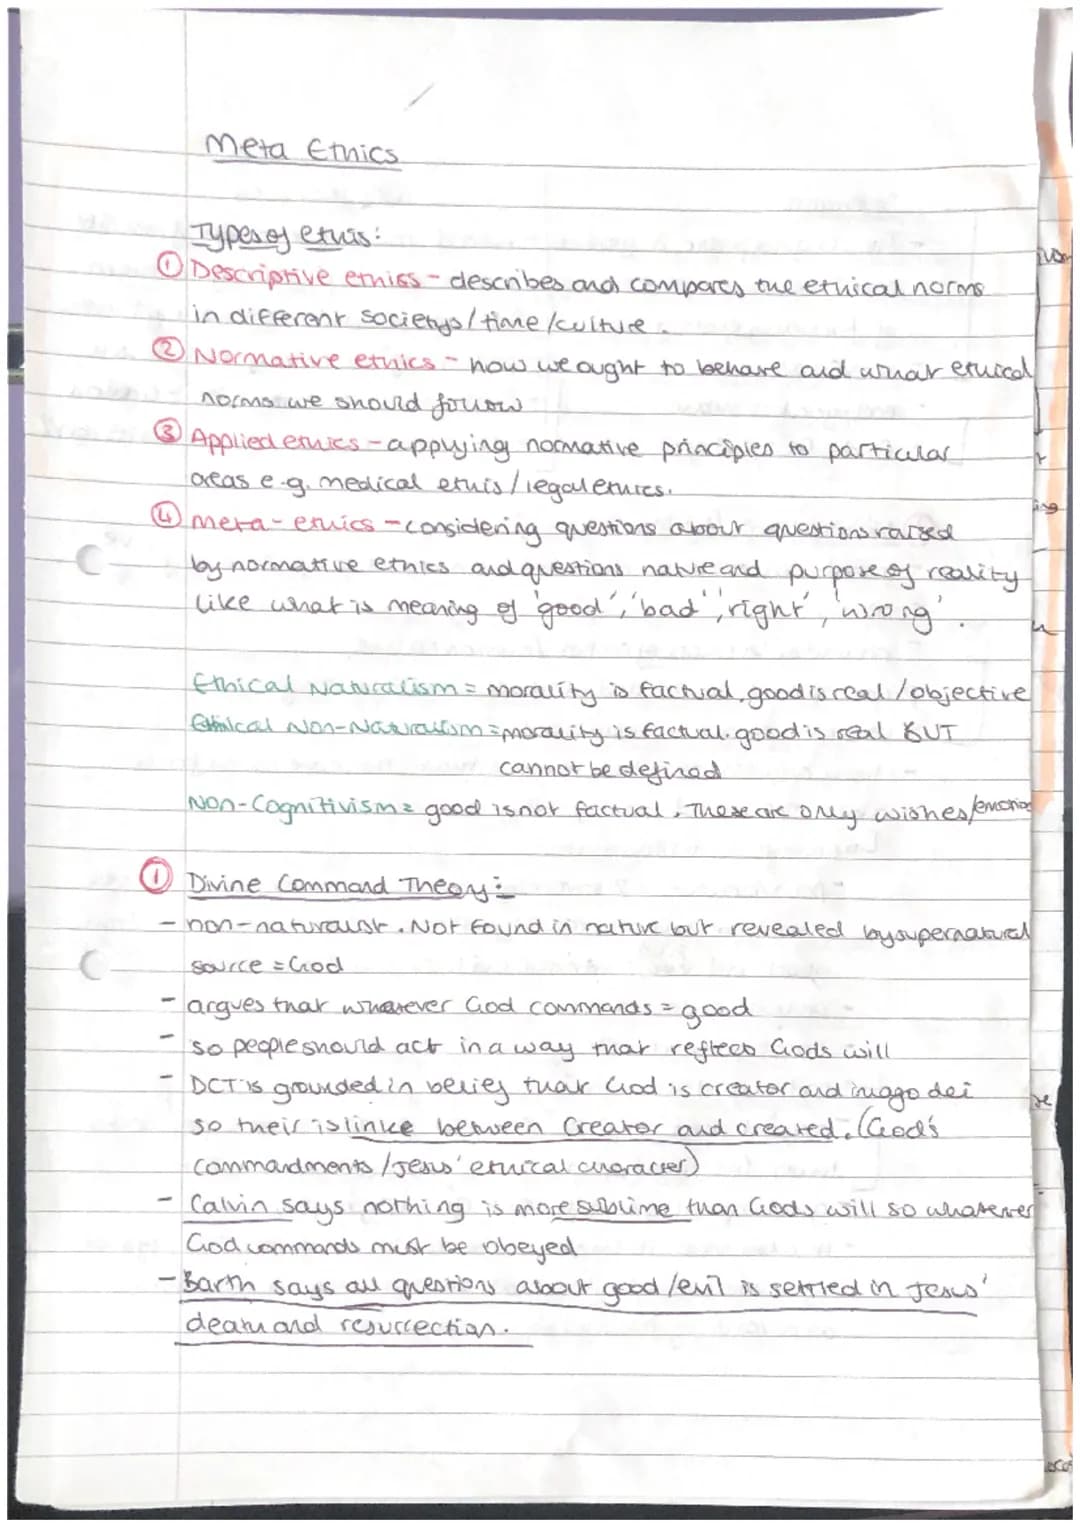 Meta Ethics
Types of ethis:
① Descriptive ethiss - describes and compares the ethical norms
in different societys/time/culture.
② Normative ethics - how we ought to behave and what ethical
norms we should follow
③ Applied ethics - applying normative principles to particular
areas e.g. medical ethis/legal ethics.
④ meta-ethics - considering questions about questions raised
by normative ethics and questions nature and purpose of reality
like what is meaning of 'good', 'bad', 'right', 'wrong'.
Ethical Naturalism = morality is factual, good is real/objective
Ethical Non-Naturalism = morality is factual. good is real BUT
cannot be defined
Non-Cognitivism = good is not factual. These are only wishes/emotions
① Divine Command Theory:
- non-naturalist. Not found in nature but revealed by supernatural
source = God
- argues that whatever God commands = good
- so people should act in a way that reflects Gods will
- DCT is grounded in belief that God is creator and imago dei
so their is linke between Creator and created. (God's
commandments/Jesus' ethical character)
- Calvin says nothing is more sublime than Gods will so whatever
God commands must be obeyed
- Barth says all questions about good/evil is settled in Jesus'
death and resurrection.